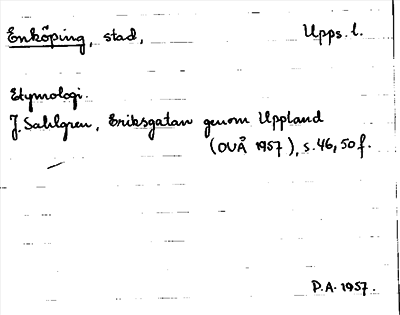 Enköping, stad, Upps. l.
Etymologi.
J. Sahlgren, Eriksgatan genom Uppland
(OUÅ 1957), s. 46, 50 f.
P.A. 1957.